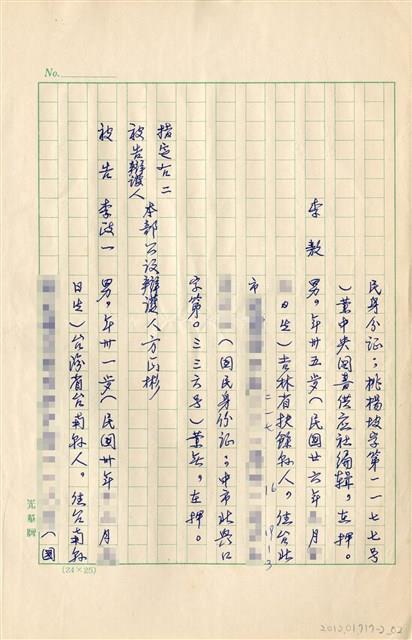 No.
民身份证：桃楊坡字第一一七七号
）業中央圖書供应社编辑，在押。
李敖
男，年卅五岁（民国廿六年 月
日生）吉林省扶餘縣人，住台北
市
（国民身份证：中市北興口
字第0三三六号）業無，在押。
指定右二
被告辯護人
本部公设辯護人方正彬
被告李政一
男，年卅一岁（民国卅年 月
日生）台湾省台南縣人，住台南縣
（国
(24×25)
2010.01.717-2_02